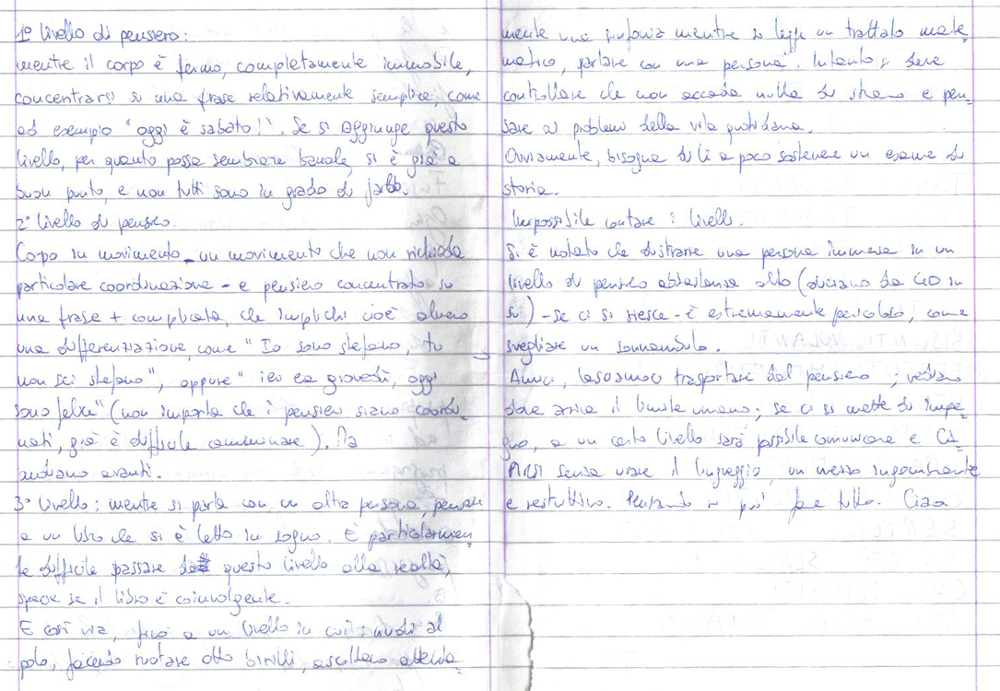 1° livello di pensiero:
mentre il corpo è fermo, completamente immobile,
concentrarsi su una frase relativamente semplice, come
ad esempio "oggi è sabato!". Se si aggiunge questo
livello, per quanto possa sembrare banale, si è già a
buon punto, e non tutti sono in grado di farlo.
2° livello di pensiero.
Corpo in movimento - un movimento che non richieda
particolare coordinazione - e pensiero concentrato su
una frase + complicata, che implichi cioè almeno
una differenziazione, come "Io sono stefano, tu
non sei stefano", oppure "ieri era giovedì, oggi
sono felice" (non importa che i pensieri siano coordi=
nati, già è difficile camminare). Ma
andiamo avanti.
3° livello: mentre si parla con un altra persona, pensare
a un libro che si è letto in sogno. È particolarmen
te difficile passare da questo livello alla realtà,
specie se il libro è coinvolgente.
E così via, fino a un livello in cui: nudi al
polo, facendo ruotare otto birilli, ascoltano attenta=
mente una sinfonia mentre si legge un trattato mate=
matico, parlare con una persona. Intanto si deve
controllare che non accada nulla di strano e pen=
sare ai problemi della vita quotidiana.
Ovviamente, bisogna di lì a poco sostenere un esame di
storia.
Impossibile contare i livelli.
Si è notato che distrarre una persona immersa in un
livello di pensiero abbastanza alto (diciamo da 40 in
su) - se ci si riesce - è estremamente pericoloso, come
svegliare un sonnambulo.
Amici, lasciamoci trasportare dal pensiero; vediamo
dove arriva il limite umano; se ci si mette di impe=
gno, a un certo livello sarà possibile comunicare e
senza usare il linguaggio, un mezzo ingombrante
e restrittivo. Pensando si può fare tutto. Ciao